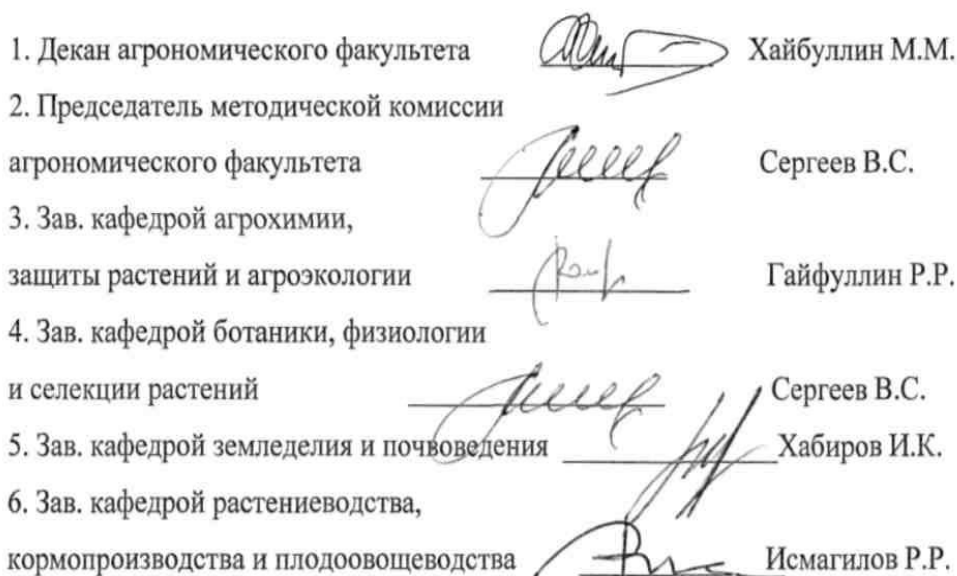 1. Декан агрономического факультета Хайбуллин М.М.
2. Председатель методической комиссии
агрономического факультета Сергеев В.С.
3. Зав. кафедрой агрохимии,
защиты растений и агроэкологии Гайфуллин Р.Р.
4. Зав. кафедрой ботаники, физиологии
и селекции растений Сергеев В.С.
5. Зав. кафедрой земледелия и почвоведения Хабиров И.К.
6. Зав. кафедрой растениеводства,
кормопроизводства и плодоовощеводства Исмагилов Р.Р.